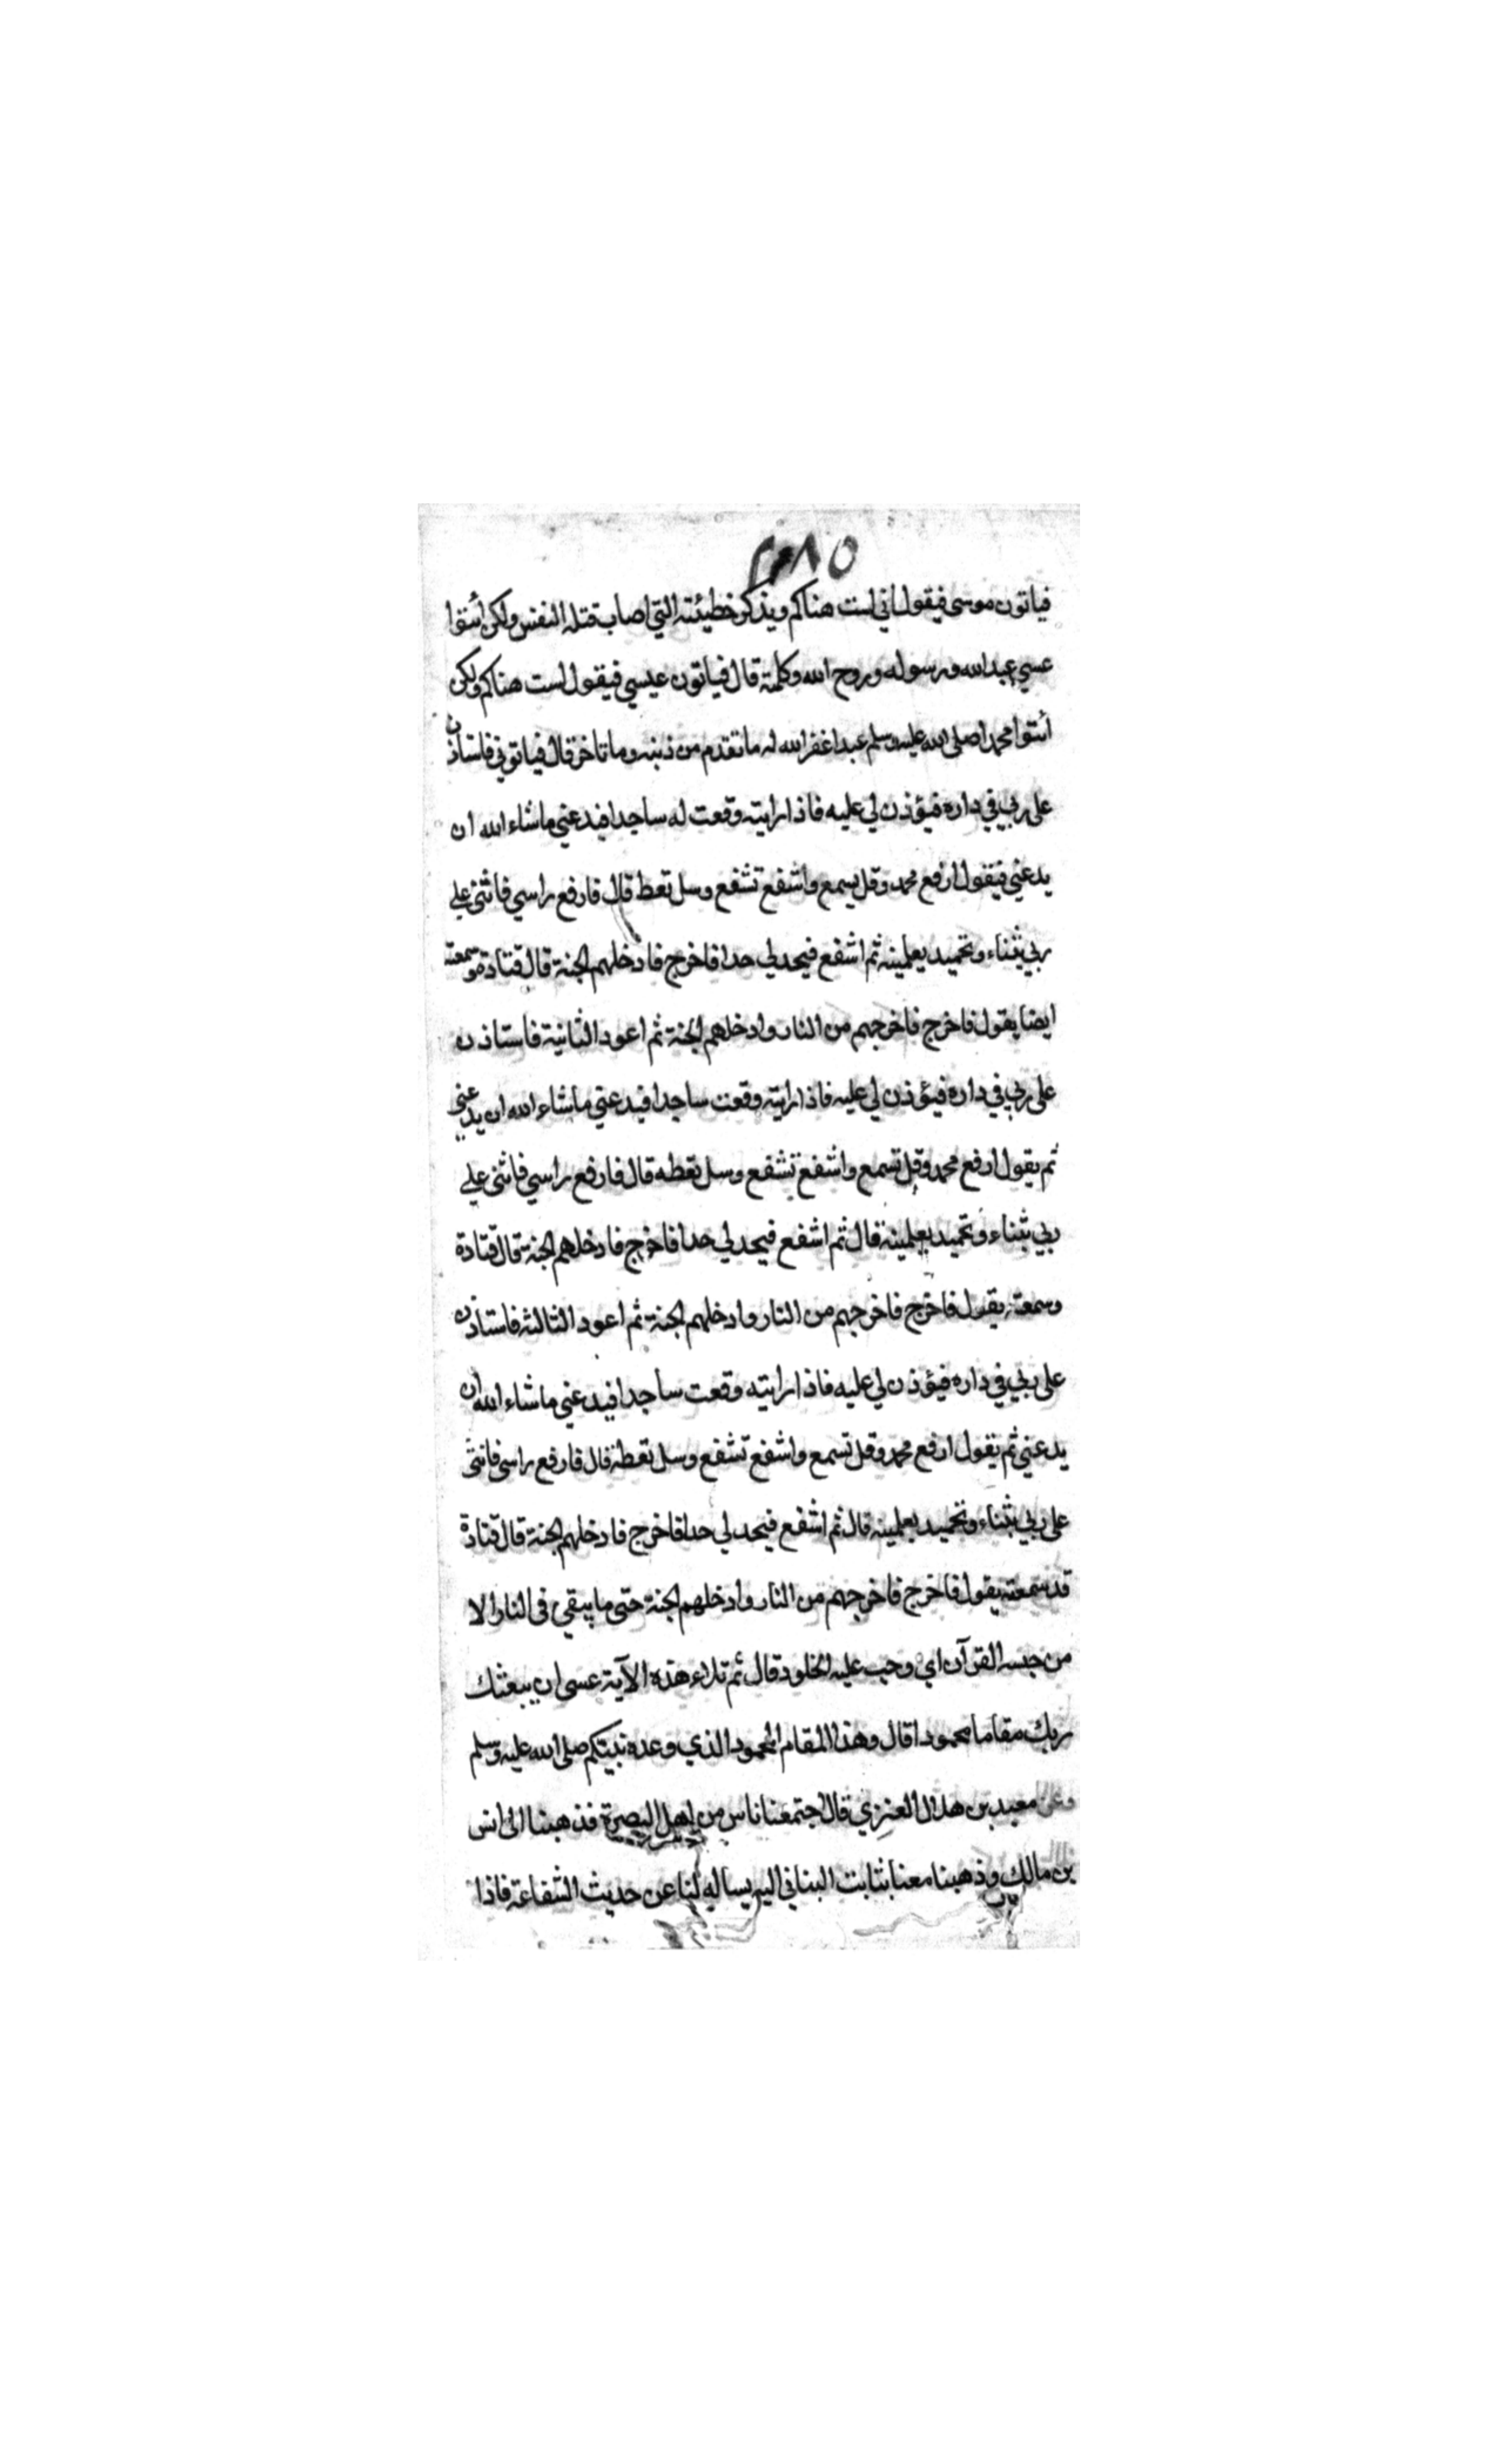 ٢٠٨٥
فياتون موسى فيقول اني لست هناكم ويذكر خطيئته التي اصاب قتله النفس ولكن أئتوا
عسي عبد الله ورسوله وروح الله وكلمة قال فياتون عيسي فيقول لست هناكم ولكن
أئتوا محمدا صلى الله عليه وسلم عبدا غفر الله له ما تقدم من ذنبه وما تاخر قال فياتوني فاستاذن
على ربي في داره فيؤذن لي عليه فاذا رايته وقعت له ساجدا فيدعني ما شاء الله ان
يدعني فيقول ارفع محمد وقل يسمع واشفع تشفع وسل تعط قال فارفع راسي فاثني علي
ربي بثناء وتحميد يعلمينه ثم اشفع فيحد لي حدا فاخرج فادخلهم الجنة قال قتادة وسمعته
ايضا يقول فاخرج فاخرجهم من النار وادخلهم الجنة ثم اعود الثانية فاستاذن
على ربي في داره فيؤذن لي عليه فاذا رايته وقعت ساجدا فيدعني ما شاء الله ان يدعني
ثم يقول ارفع محمد وقل تسمع واشفع تشفع وسل تعطه قال فارفع راسي فاثني علي
ربي بثناء وتحميد يعلمينه قال ثم اشفع فيحد لي حدا فاخرج فادخلهم الجنة قال قتادة
وسمعته يقول فاخرج فاخرجهم من النار وادخلهم الجنة ثم اعود الثالثه فاستاذن
على ربي في داره فيؤذن لي عليه فاذا رايته وقعت ساجدا فيدعني ما شاء الله ان
يدعني ثم يقول ارفع محمد وقل تسمع واشفع تشفع وسل تعطه قال فارفع راسي فاثني
على ربي بثناء وتحميد يعلمينه قال ثم اشفع فيحد لي حدا فاخرج فادخلهم الجنة قال قتادة
قد سمعته يقول فاخرج فاخرجهم من النار وادخلهم الجنة حتى ما يبقي في النار الا
من حبسه القرآن اي وجب عليه الخلود قال ثم تلاء هذه الآية عسى ان يبعثك
ربك مقاما محمودا قال وهذا المقام المحمود الذي وعده نبيكم صلى الله عليه وسلم
وعن معبد بن هلال العنزي قال اجتمعنا ناس من اهل البصرة فذهبنا الى انس
بن مالك وذهبنا معنا بثابت البناني اليه يساله لنا عن حديث الشفاعة فاذا